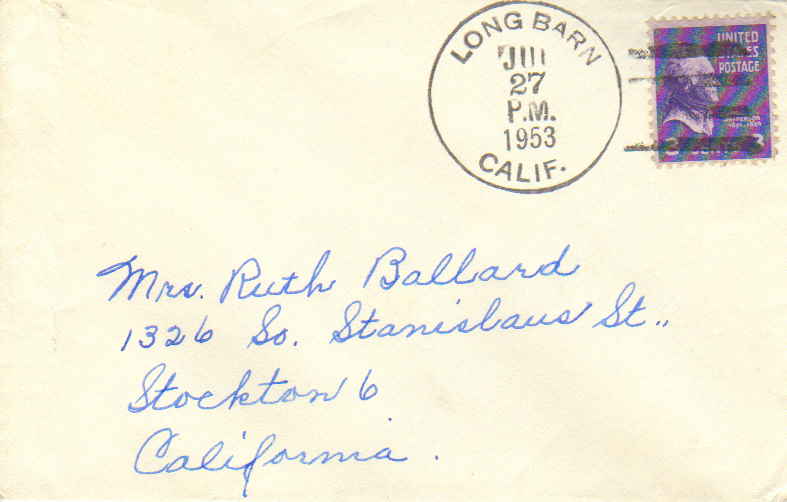 LONG BARN
27
P.M.
1953
CALIF.
UNITED
STATES
POSTAGE
3
Mrs. Ruth Ballard
1326 So. Stanislaus St.,
Stockton 6
California.